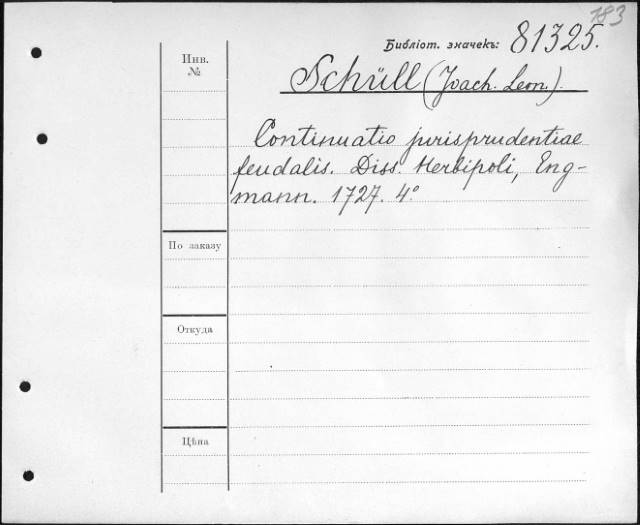 183
Библіот. значекъ: 81325.
Инв.
№
Schüll (Joach. Leon.).
Continuatio jurisprudentiae
feudalis. Diss. Herbipoli, Eng-
mann. 1727. 4°
По заказу
Откуда
Цѣна